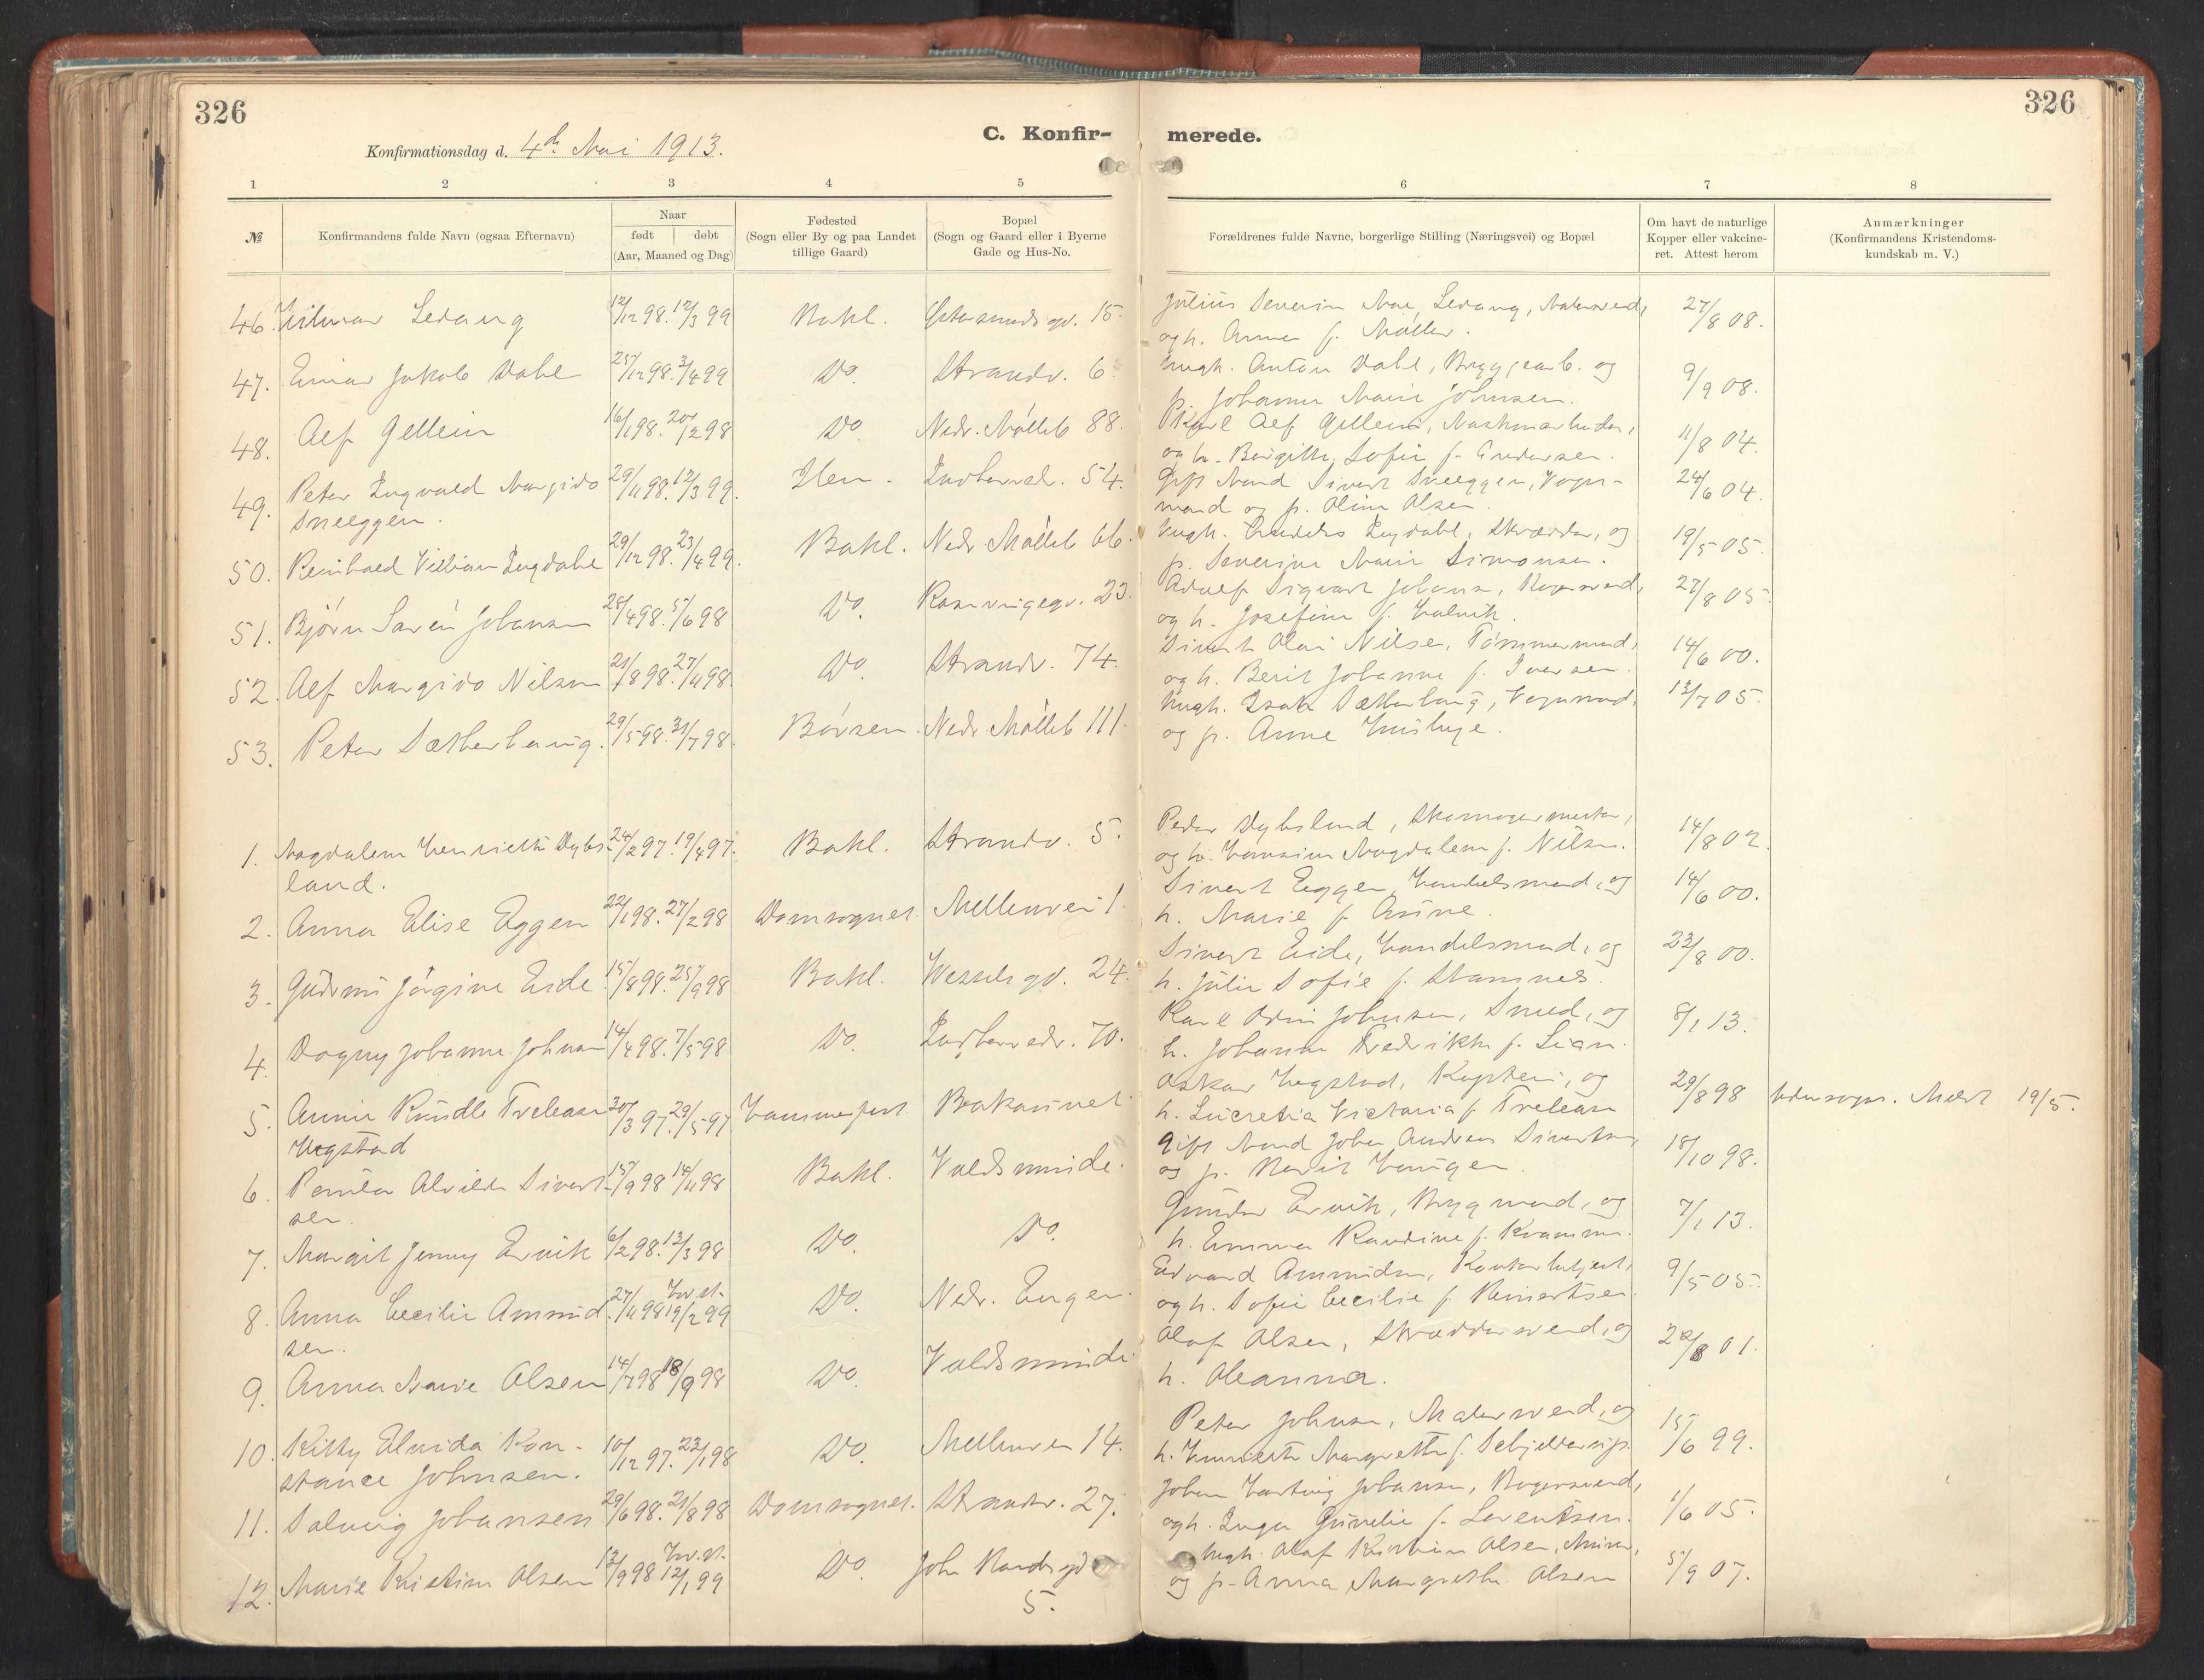 326
326
Konfirmationsdag d. 4de Mai 1913.
C. Konfir-
merede.
1 2 3 4 5 6 7 8
№
Konfirmandens fulde Navn (ogsaa Efternavn)
Naar
født døbt
(Aar, Maaned og Dag)
Fødested
(Sogn eller By og paa Landet
tillige Gaard)
Bopæl
(Sogn og Gaard eller i Byerne
Gade og Hus-No.
Forældrenes fulde Navne, borgerlige Stilling (Næringsvei) og Bopæl
Om havt de naturlige
Kopper eller vakcine-
ret. Attest herom
Anmærkninger
(Konfirmandens Kristendoms-
kundskab m. V.)
46. Hilmar Ledang 12/12 98. 12/3 99 Bakl. 15. Julius Severin Ledang, Malersvend, 27/8 08.
og h. Anna f. Møller.
47. Einar Jakob Dahl 25/12 98. 3/4 99 Do. Strandv. 6. Ungk. Anton Dahl, Bryggearb. og 9/9 08.
p. Johanna Marie Johnsen.
48. Alf Gellein 16/1 98. 20/2 98 Do. Nedr. Mølleb 88. Karl Alf Gellein, 11/8 04.
og h. Bergitte Sofie f. Andersen.
49. Peter Ingvald Margido 29/11 98. 12/3 99. Ilen. Indherredv. 54. Gift Mand Sivert Sneeggen, Vogn- 24/6 04.
Sneeggen. mand og p. Oline Olsen.
50. Reinhold Villiam Lugdahl 29/12 98. 23/4 99. Bakl. Nedr Mølleb 66. Ungk. Anders Lugdahl, Skrædder, og 19/5 05.
p. Severine Marie Simonsen.
51. Bjørn Søren Johansen 28/4 98. 5/6 98 Do. 23. Adolf Sigvart Johansen, 27/8 05.
og h. Josefine f. Halvik.
52. Alf Margido Nilsen 21/8 98. 27/11 98. Do. Strandv. 74. Sivert Olai Nilsen, Tømmermand, 14/6 00.
og h. Berit Johanna f. Iversen.
53. Peter Sætherhaug. 29/5 98. 31/7 98. Børsen. Nedr Mølleb 111. Ungk. Isak Sætherhaug, Vognmand, 13/7 05.
og p. Anne Hushuge.
1. Magdalene Henriette Dybs- 24/2 97. 19/4 97. Bakl. Strandv. 5. Peder Dybsland, Skomagermester, 14/8 02.
land. og h. Hansine Magdalene f. Nilsen.
2. Anna Elise Eggen 22/1 98. 27/2 98 Domsognet. Mellemvei 1. Sivert Eggen, Handelsmand, og 14/6 00.
h. Marie f. Aune.
3. Gudrun Jørgine Eide 15/8 98. 25/9 98 Bakl. Wesselsgd. 24. Sivert Eide, Handelsmand, og 23/8 00.
h. Julie Sofie f. Stamnes.
4. Dagny Johanna Johnsen 14/4 98. 7/5 98 Do. Indherredv. 70. Karl Odin Johnsen, Smed, og 8/1 13.
h. Johanna Fredrikke f. Lian.
5. Annie Rundle Trelease 30/3 97. 29/5 97. Hammerfest Bakaunet. Oskar Hegstad, Kaptein, og 29/8 98 Udensogns. Meldt 19/5.
Hegstad h. Lucretia Victoria f. Trelease
6. Petnila Alvilde Sivert- 15/9 98 14/11 98 Bakl. Voldsminde. Gift Mand Johan Andreas Sivertsen, 18/10 98.
sen. og p. Marit Haugen.
7. Margit Jenny Ervik 6/2 98. 13/3 98 Do. Do. Gunder Ervik, Brygmand, og 7/1 13.
h. Emma Randine f. Kvamme.
8. Anna Cecilie Ammud- 27/11 98 19/2 99 Do. Nedr. Enger. Edvard Amundsen, Kontorbetjent, 9/5 05.
sen. og h. Sofie Cecilie f. Reinertsen.
9. Anna Marie Olsen 14/7 98 18/9 98 Do. Voldsminde. Olaf Olsen, Skræddersvend, og 28/8 01.
h. Oleanna.
10. Kitty Elvida Kon- 10/12 97. 23/1 98 Do. Mellemvei 14. Peter Johnsen, Malersvend, og 15/6 99.
stance Johnsen. h. Henriette Margrethe f. Schjelderup.
11. Solveig Johansen 29/6 98. 21/8 98 Domsognet. Strandv. 27. Johan Hartvig Johansen, Bagersvend, 1/6 05.
og h. Inga Gunelie f. Lorentsen.
12. Marie Kristine Olsen 13/9 98 12/1 99 Do. John Sandsgd Ungk. Olaf Kristian Olsen, Murer, 5/9 07.
5. og p. Anna Margrethe Olsen